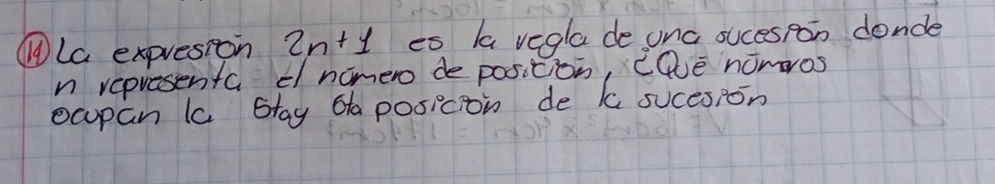 14 La expresión 2n+1 es la regla de una sucesión donde
n representa el número de posición, ¿Qué números
ocupan la 5ta y 6ta posición de la sucesión